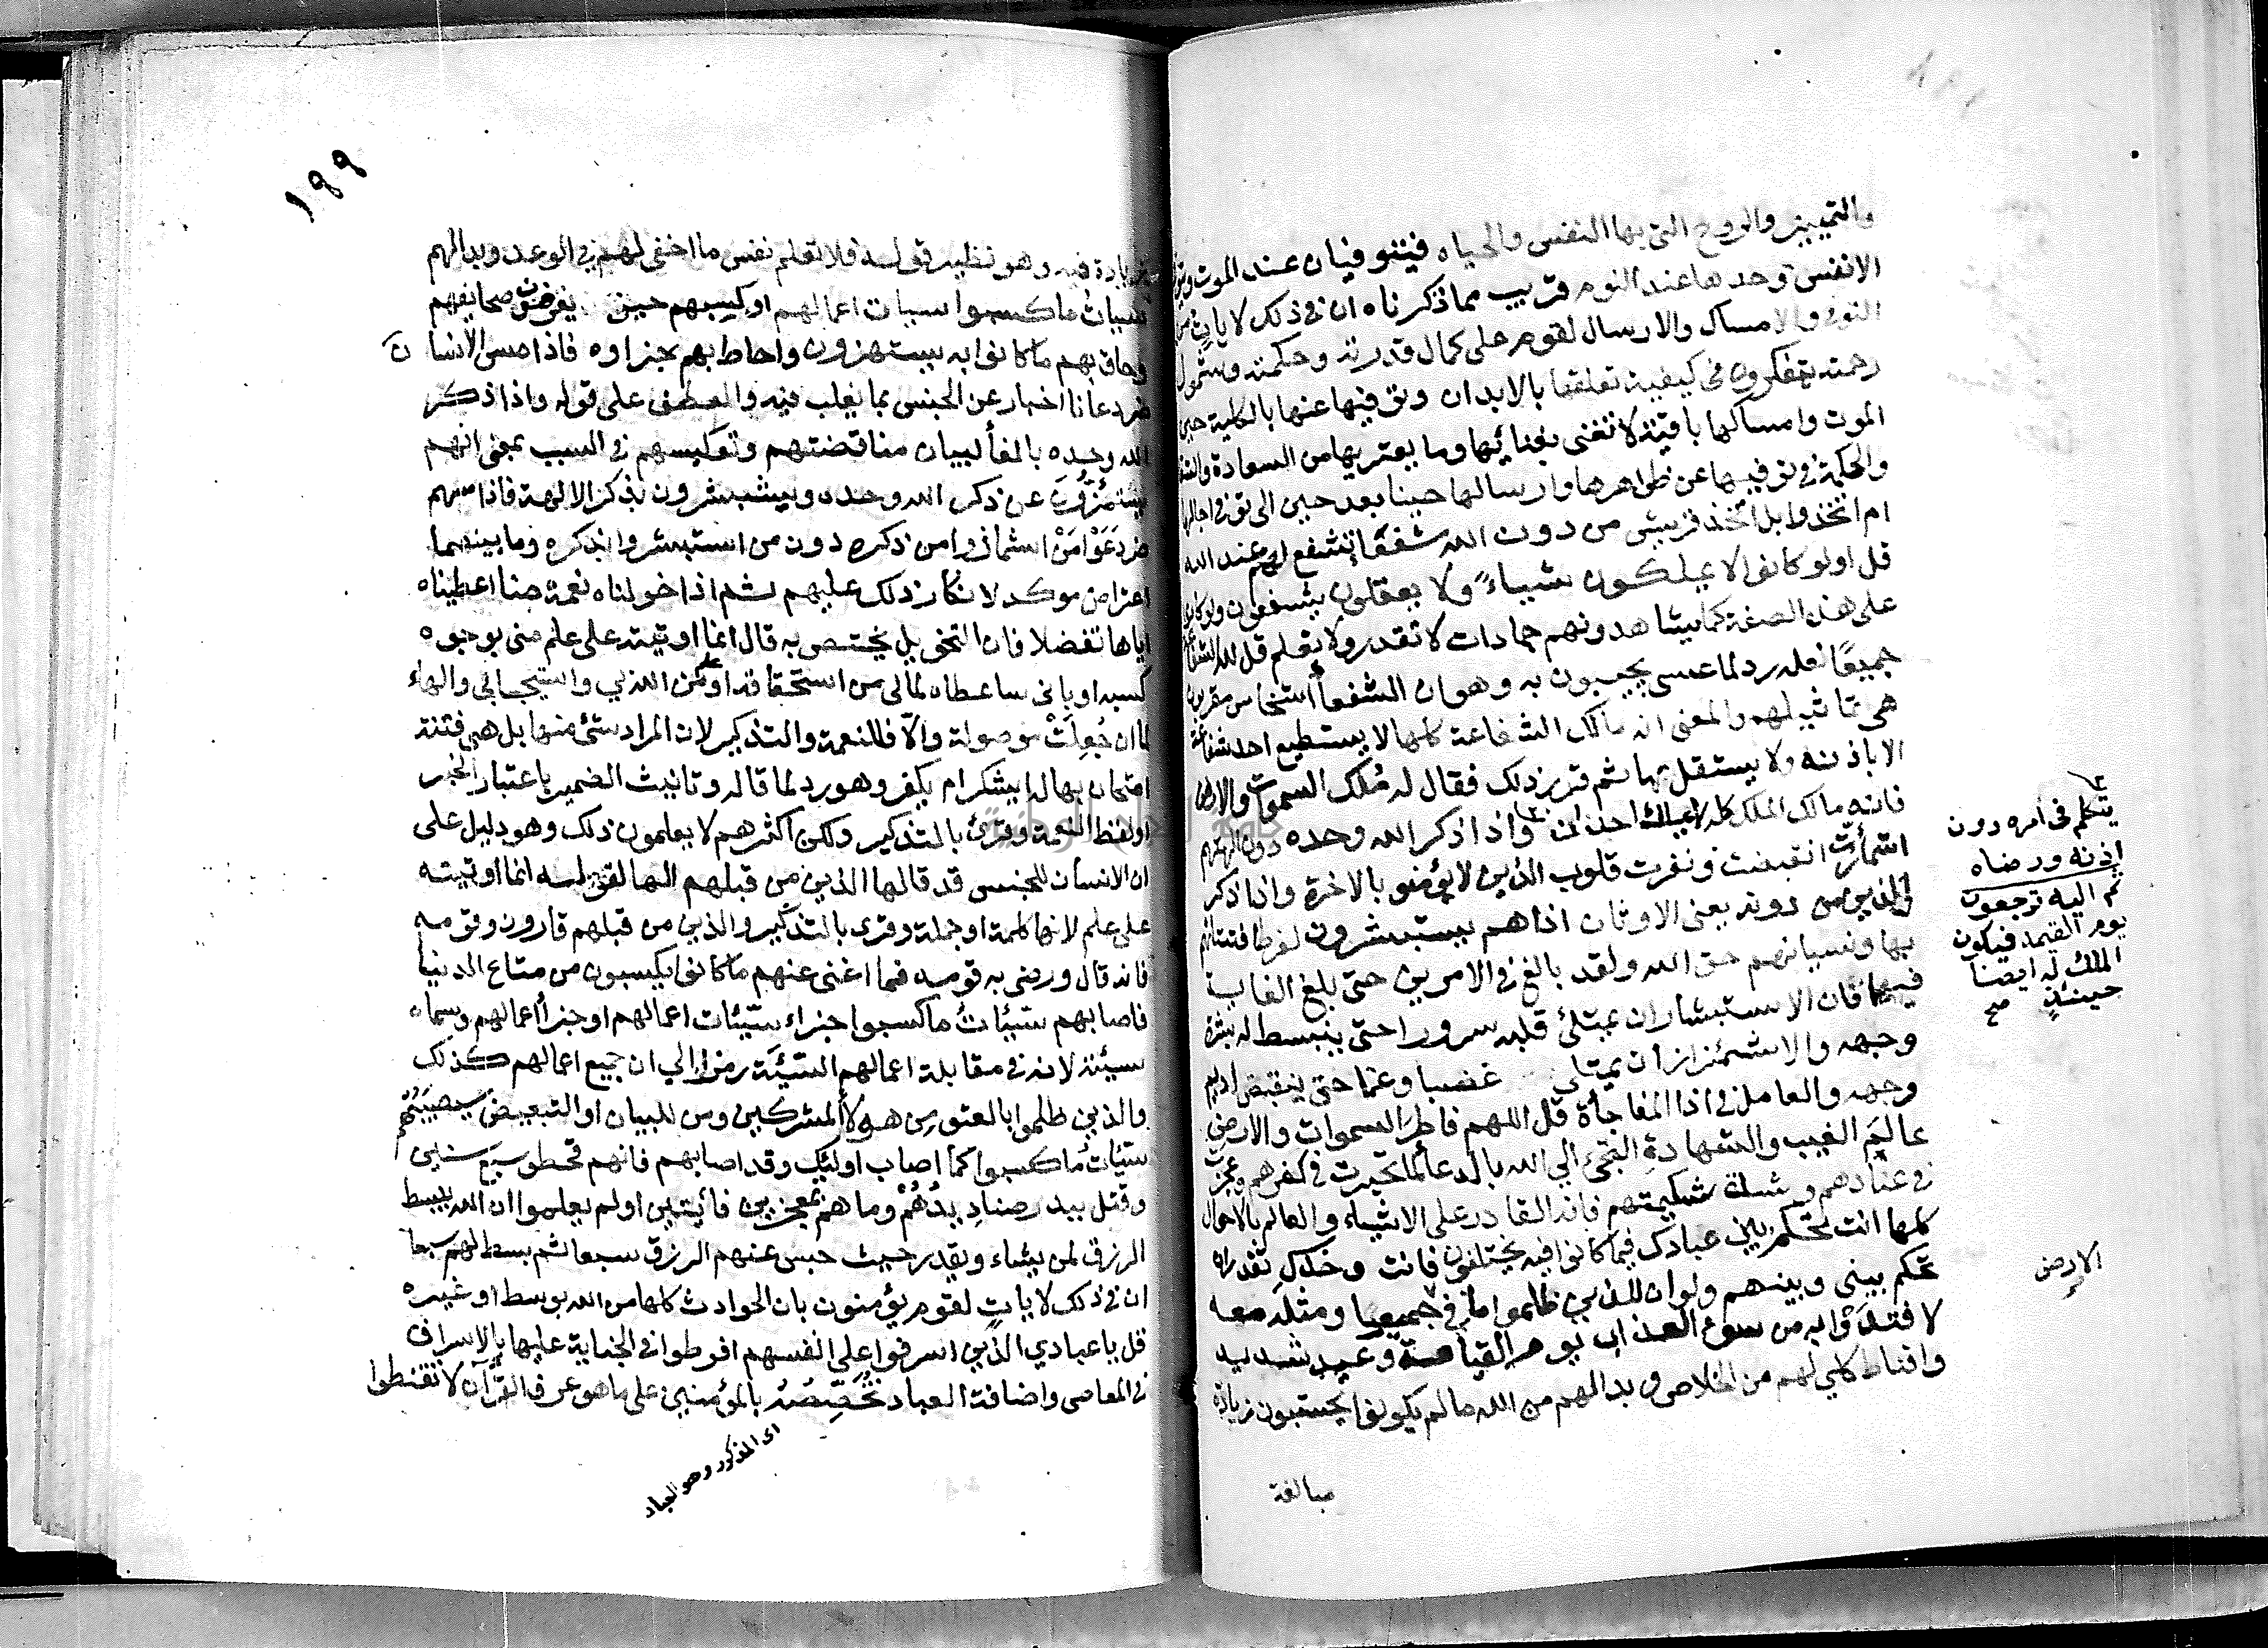 والتمييز والروح التى بها النفس والحياه فيتوفيان عند الموت وتتوفى
الانفس وحدها عند النوم قريب مما ذكرناه ان فى ذلك لايات من
التوفى والامساك والارسال لقوم على كمال قدرته وحكمته وشمول
رحمته يتفكرون فى كيفية تعلقها بالابدان وتوفيها عنها بالكلية حين
الموت وامساكها باقية لا تفنى بفنائها وما يعتريها من السعادة والشقا
والحكمة فى توفيها عن ظواهرها وارسالها حينا بعد حين الى توفى اجالها
ام اتخذوا بل اتخذ قريش من دون الله شفعا تشفع لهم عند الله
قل اولو كانوا لا يملكون شياء ولا يعقلون يشفعون ولو كانوا
على هذه الصفة كما يشاهدونهم جمادات لا تقدر ولا تعلم قل لله الشفاعة
جميعا لعله رد لما عسى يجيبون به وهو ان الشفعا اشخاص مقربون
هى تماثيلهم والمعنى انه مالك الشفاعة كلها لا يستطيع احد شفاعة
الا باذنه ولا يستقل بها ثم قرر ذلك فقال له ملك السموات والارض
فانه مالك الملك كله لا يملك احد ان واذا ذكر الله وحده دون الهتهم
اشمأزت انقبضت ونفرت قلوب الذين لا يؤمنو بالاخرة واذا ذكر
الذين من دونه يعنى الاوثان اذا هم يستبشرون لفرط افتتانهم
بها ونسيانهم حق الله ولقد بالغ فى الامرين حتى بلغ الغاية
فيهما فان الاستبشار ان يمتلئ قلبه سرورا حتى ينبسط له بشرة
وجهه والاشمئزاز ان يمتلى غضبا وغما حتى ينقبض اديم
وجهه والعامل فى اذا المفاجأة قل اللهم فاطر السموات والارض
عالم الغيب والشهادة التجئ الى الله بالدعا لما تحيرت فى كفرهم وعجزت
فى عنادهم وشدة شكيمتهم فانه القادر على الاشياء والعالم بالاحوال
كلها انت تحكم بين عبادك فيما كانوا فيه يختلفون فانت وحدك تقدر ان
تحكم بينى وبينهم ولو ان للذين ظلموا ما فى جميعا ومثله معه
لافتدوا به من سوء العذاب يوم القيامة وعيد شديد
واقناط كلي لهم من الخلاص وبدا لهم من الله ما لم يكونوا يحتسبون زيادة
مبالغة
يتكلم فى امره دون
اذنه ورضاه
ثم اليه ترجعون
يوم القيمة فيكون
الملك له ايضا
حينئذ صح
الارض
١٩٩
فيه وهو نظير قوله فلا تعلم نفس ما اخفى لهم فى الوعد وبدا لهم
سيئات ما كسبوا سيات اعمالهم او كسبهم حين تعرض صحايفهم
وحاق بهم ما كانوا به يستهزون واحاط بهم جزاوه فاذا مس الانسان
ضر دعانا اخبار عن الجنس بما يغلب فيه والعطف على قوله واذا ذكر
الله وحده بالفأ لبيان مناقضتهم وتعكيسهم فى السبب بمعنى انهم
يشمئزون عن ذكر الله وحده ويستبشرون بذكر الالهة فاذا مسهم
ضر دعوا من اشمأزوا من ذكره دون من استبشروا بذكره وما بينهما
اعتراض موكد لانكار ذلك عليهم ثم اذا خولناه نعمة منا اعطيناه
اياها تفضلا فان التخويل يختص به قال انما اوتيته على علم منى بوجوه
كسبه او بانى ساعطاه لمالى من استحقاقه او علم من الله بي واستيجابى والهاء
لما ان جعلت موصولة والا فللنعمة والتذكير لان المراد شئ منها بل هى فتنة
امتحان بها له ايشكر ام يكفر وهو رد لما قاله وتانيث الضمير باعتبار الخبر
او لفظ النعمة وقرئ بالتذكير ولكن اكثرهم لا يعلمون ذلك وهو دليل على
ان الانسان للجنس قد قالها الذين من قبلهم الها لقوله انما اوتيته
على علم لانها كلمة او جملة وقرى بالتذكير والذين من قبلهم قارون وقومه
فانه قال ورضى به قومه فما اغنى عنهم ما كانوا يكسبون من متاع الدنيا
فاصابهم سيئات ما كسبوا جزاء سيئات اعمالهم او جزأ اعمالهم وسماه
سيئة لانه فى مقابلة اعمالهم السيئة رمزا الي ان جميع اعمالهم كذلك
والذين ظلموا بالعتو من هولأ المشركين ومن للبيان او التبعيض سيصيبهم
سيئات ما كسبوا كما اصاب اولئك وقد اصابهم فانهم قحطو سبع سنين
وقتل ببدر صناديدهم وما هم بمعجزين فائتين اولم يعلموا ان الله يبسط
الرزق لمن يشاء ويقدر حيث حبس عنهم الرزق سبعا ثم بسط لهم سبعا
ان فى ذلك لايات لقوم يؤمنون بان الحوادث كلها من الله بوسط او غيره
قل ياعبادي الذين اسرفوا على انفسهم افرطوا فى الجناية عليها بالاسراف
فى المعاصى واضافة العباد تخصصه بالمؤمنين على ما هو عرف القرآن لا تقنطوا
اى المذكور وهو العباد